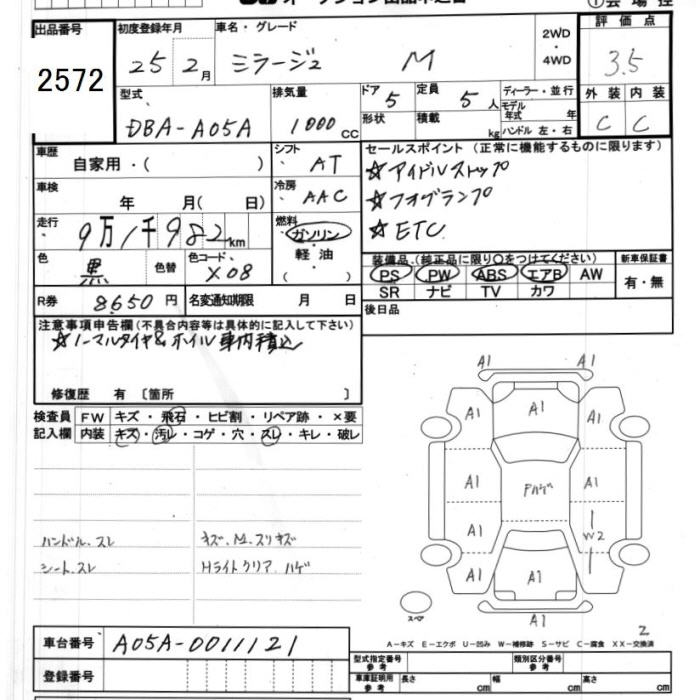 出品番号 初度登録年月 車名・グレード 2WD・4WD 評価点
2572 25 2月 ミラージュ M 3.5
型式 排気量 ドア 5 定員 5人 ディーラー・並行 外装 内装
DBA-A05A 1000cc 形状 積載 kg モデル年式 年 C C
ハンドル 左・右
車歴 自家用・( ) シフト AT セールスポイント (正常に機能するものに限ります)
☆アイドルストップ
車検 年 月( 日) 冷房 AAC ☆フォグランプ
走行 9万1千982km 燃料 ガソリン・軽油・( ) ☆ETC
色 黒 色替 色コード X08 装備品 (純正品に限り〇をつけてください) 新車保証書
PS PW ABS エアB AW 有・無
SR ナビ TV カワ
R券 8650円 名変通知期限 月 日 後日品
注意事項申告欄(不具合内容等は具体的に記入して下さい)
☆ノーマルタイヤ&ホイル車内積込
修復歴 有 〔箇所 〕
検査員 FW キズ・飛石・ヒビ割・リペア跡・×要
記入欄 内装 キズ・汚レ・コゲ・穴・スレ・キレ・破レ
A1
A1 A1 A1
A1 Pハゲ A1
A1 W2
A1 A1
A1
ハンドル、スレ キズ、M.スリキズ
シート、スレ Hライトクリア ハゲ
スペア
2
A-キズ E-エクボ U-凹み W-補修跡 S-サビ C-腐食 XX-交換済
車台番号 A05A-0011121
登録番号
型式指定番号 参考 類別区分番号 参考
車庫証明用 参考 長さ cm 幅 cm 高さ cm